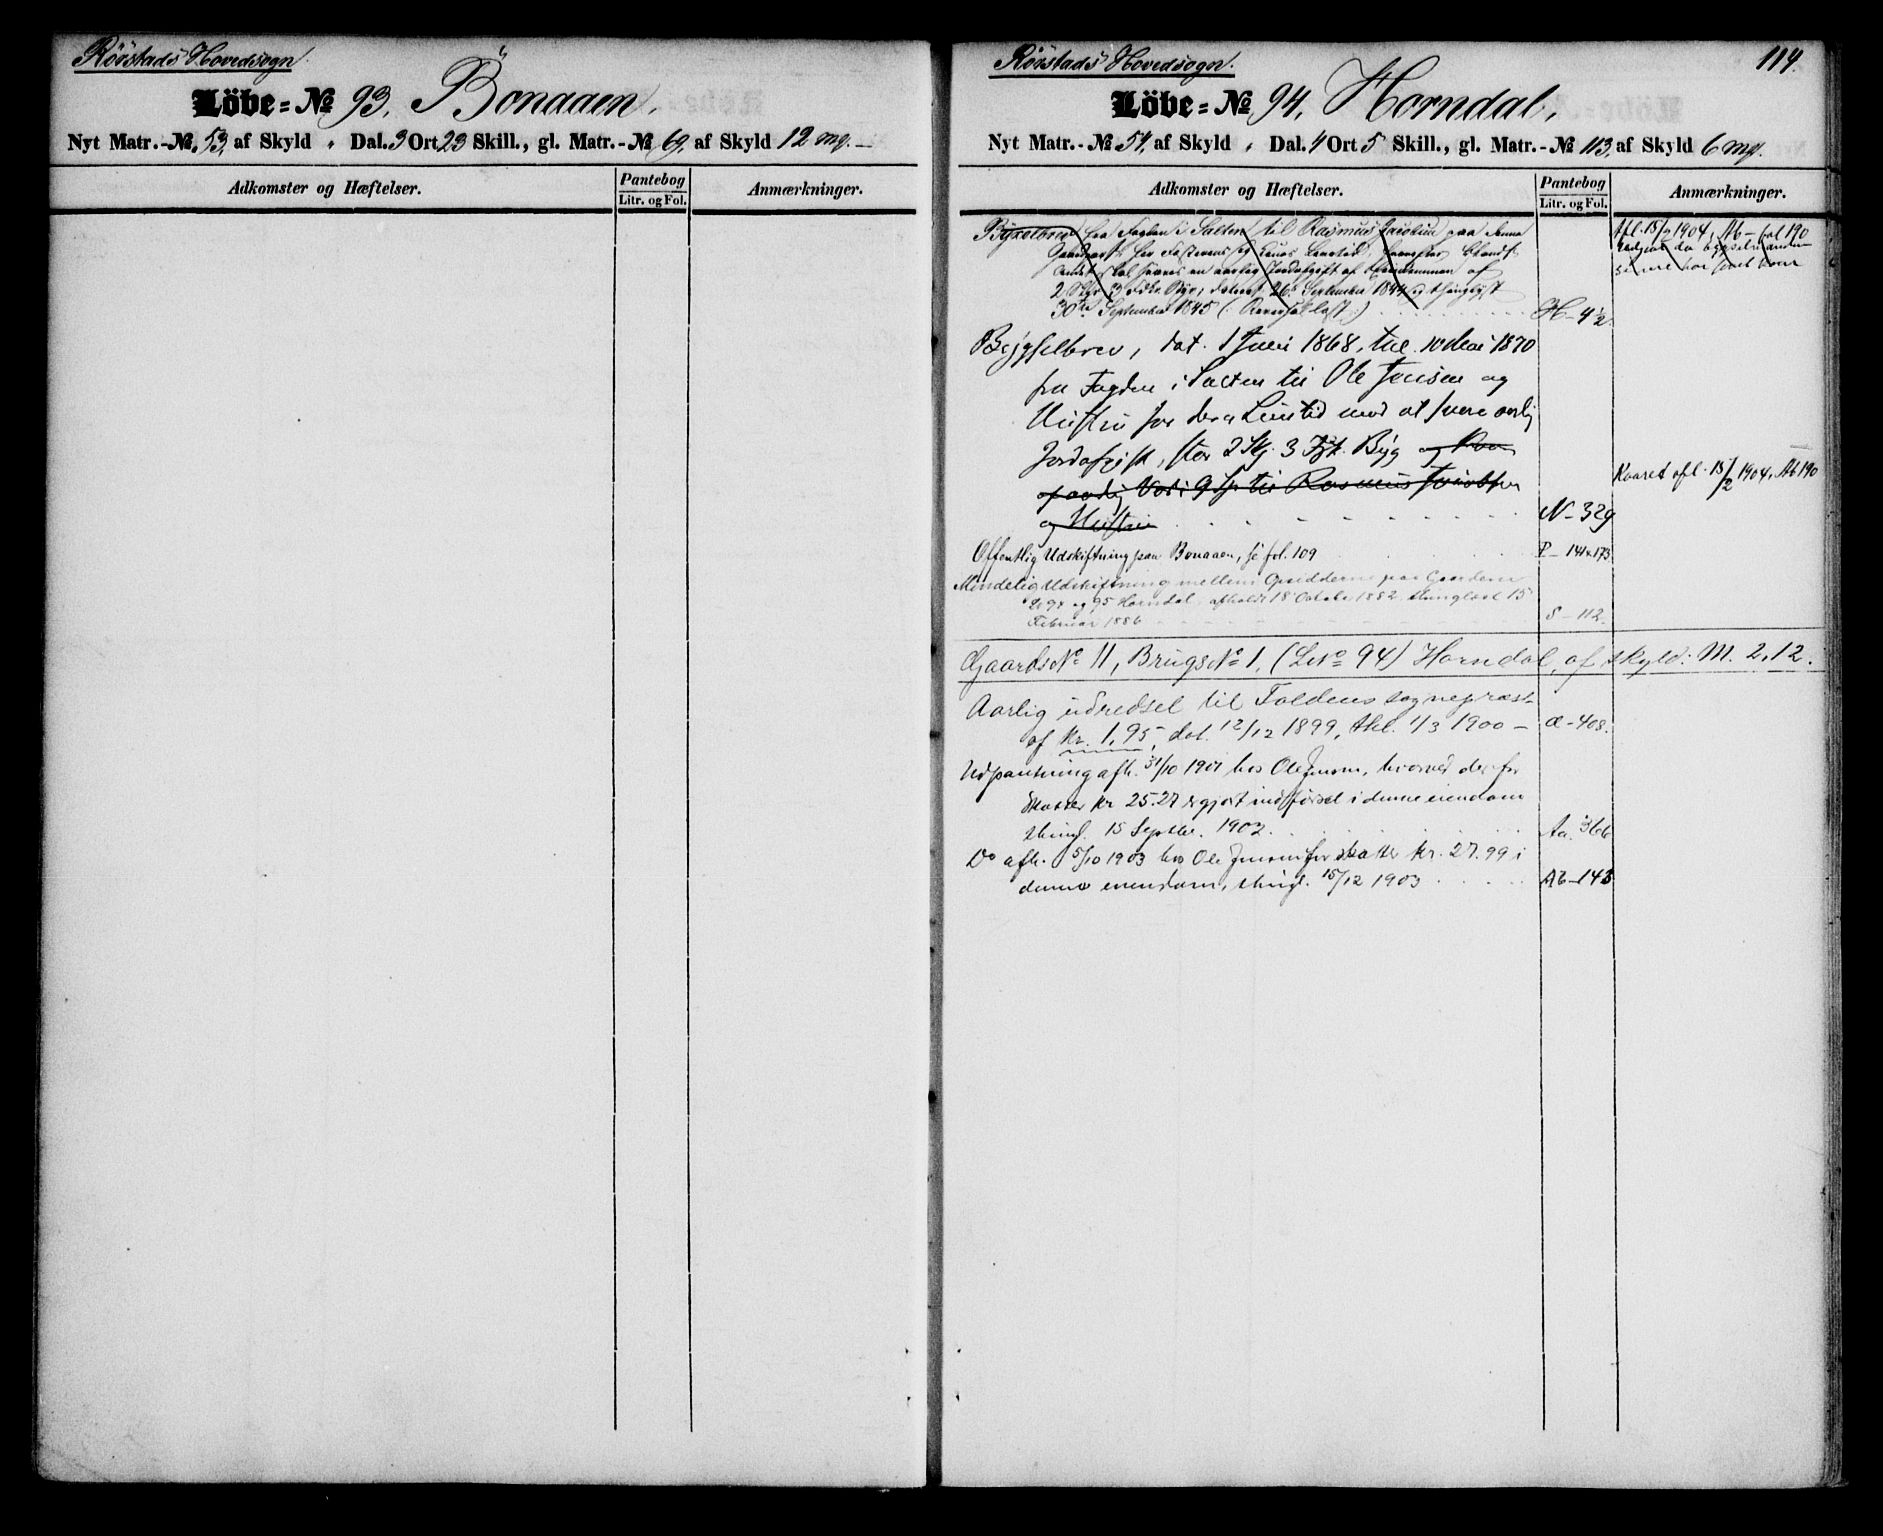 Rørstads Hovedsogn.
Löbe=No 93. Bonaaen.
Nyt Matr.-No 53, af Skyld " Dal. 3 Ort 23 Skill., gl. Matr.-No 69, af Skyld 12 mg.
Adkomster og Hæftelser.
Pantebog
Litr. og Fol.
Anmærkninger.
Rørstads Hovedsogn.
114.
Löbe=No 94. Horndal.
Nyt Matr.-No 54, af Skyld " Dal. 4 Ort 5 Skill., gl. Matr.-No 113, af Skyld 6 mg.
Adkomster og Hæftelser.
Pantebog
Litr. og Fol.
Anmærkninger.
Bygselbrev fra Fogden i Salten til Rasmus Jacobsen paa denne
Afl. 15/2 1904, Ab- fol 190
2 Skjr 3 Fdkr Byg; dateret 26 September 1844 og thinglyst
30te September 1845 H- 42
Bygselbrev, dat. 1 Juni 1868, thl. 10 Mai 1870
fra Fogden i Salten til Ole Jensen og
Hustru for deres Livstid mod at svare aarlig
Jordafgift, stor 2 Skj. 3 Fjk. Byg og Kaar
af aarlig Værdi 9 Sp til Rasmus Jacobsen
Kaaret afl. 15/2 1904, Ab 190
og Hustru N- 329
Offentlig Udskiftning paa Bonaaen, se fol. 109 P- 141 & 173
Mindelig Udskiftning mellem Opsidderne paa Gaardene
No 94 og 95 Horndal, afholdt 18 October 1882, thinglæst 15
Februar 1886 S- 112.
Gaards No 11, Brugs No 1, (L No 94) Horndal, af skyld: M. 2,12.
Aarlig udredsel til Foldens sognepræst
af kr. 1,95, dat. 12/12 1899, thl. 1/3 1900 - Æ-408.
Udpantning afh. 31/10 1901 hos Ole Jensen, hvorved der for
skatter kr 25.27 er gjort indførsel i denne eiendom
thingl. 15 Septbr. 1902. Aa. 366
Do afh. 5/10 1903 hos Ole Jensen for skatter kr. 27.99 i
denne eiendom, thingl. 15/12 1903 Ab-143